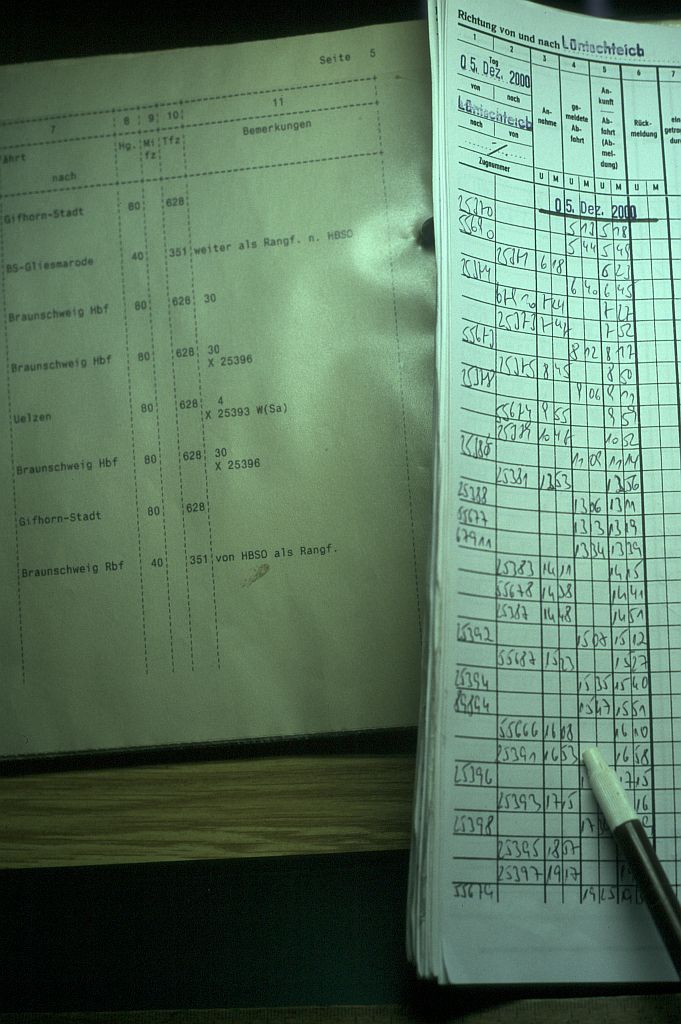 Seite 5
7 8 9 10 11
Fahrt Hg. Mi fz Tfz Bemerkungen
nach
Gifhorn-Stadt 80 628
BS-Gliesmarode 40 351 weiter als Rangf. n. HBSO
Braunschweig Hbf 80 628 30
Braunschweig Hbf 80 628 30
X 25396
Uelzen 80 628 4
X 25393 W(Sa)
Braunschweig Hbf 80 628 30
X 25396
Gifhorn-Stadt 80 628
Braunschweig Rbf 40 351 von HBSO als Rangf.
Richtung von und nach
1 2 3 4 5 6 7
Tag
05. Dez. 2000
von nach
nach von
Zugnummer
An-
nahme
ge-
meldete
Ab-
fahrt
An-
kunft
Ab-
fahrt
(Ab-
mel-
dung)
Rück-
meldung
U M U M U M U M
05. Dez. 2000
25370 5 13 5 18
55670 5 44 5 49
25371 6 18 6 23
25374 6 40 6 45
7 27
25373 7 47 7 52
55673 8 12 8 17
25375 8 45 8 50
25378 9 06 9 11
55674 9 55 9 59
10 47 10 52
11 09 11 14
25381 13 53 13 56
25388 13 06 13 11
55677 13 13 13 19
67911 13 34 13 39
25383 14 11 14 15
55678 14 38 14 41
25387 14 48 14 51
25392 15 07 15 12
55687 15 23 15 27
25394 15 35 15 40
15 47 15 51
55666 16 08 16 10
25391 16 53 16 58
25396 17 15
25393 17 15
25398
25395 18 57
25397 19 17
55674